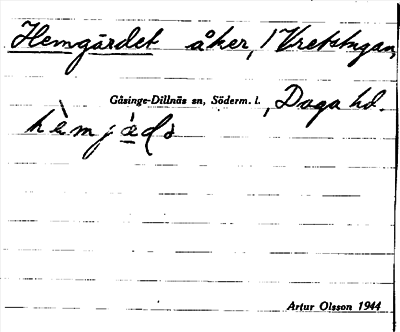 Hemgärdet åker, 1 Vretstugan,
Gåsinge-Dillnäs sn, Söderm. l., Daga hd.
Artur Olsson 1944